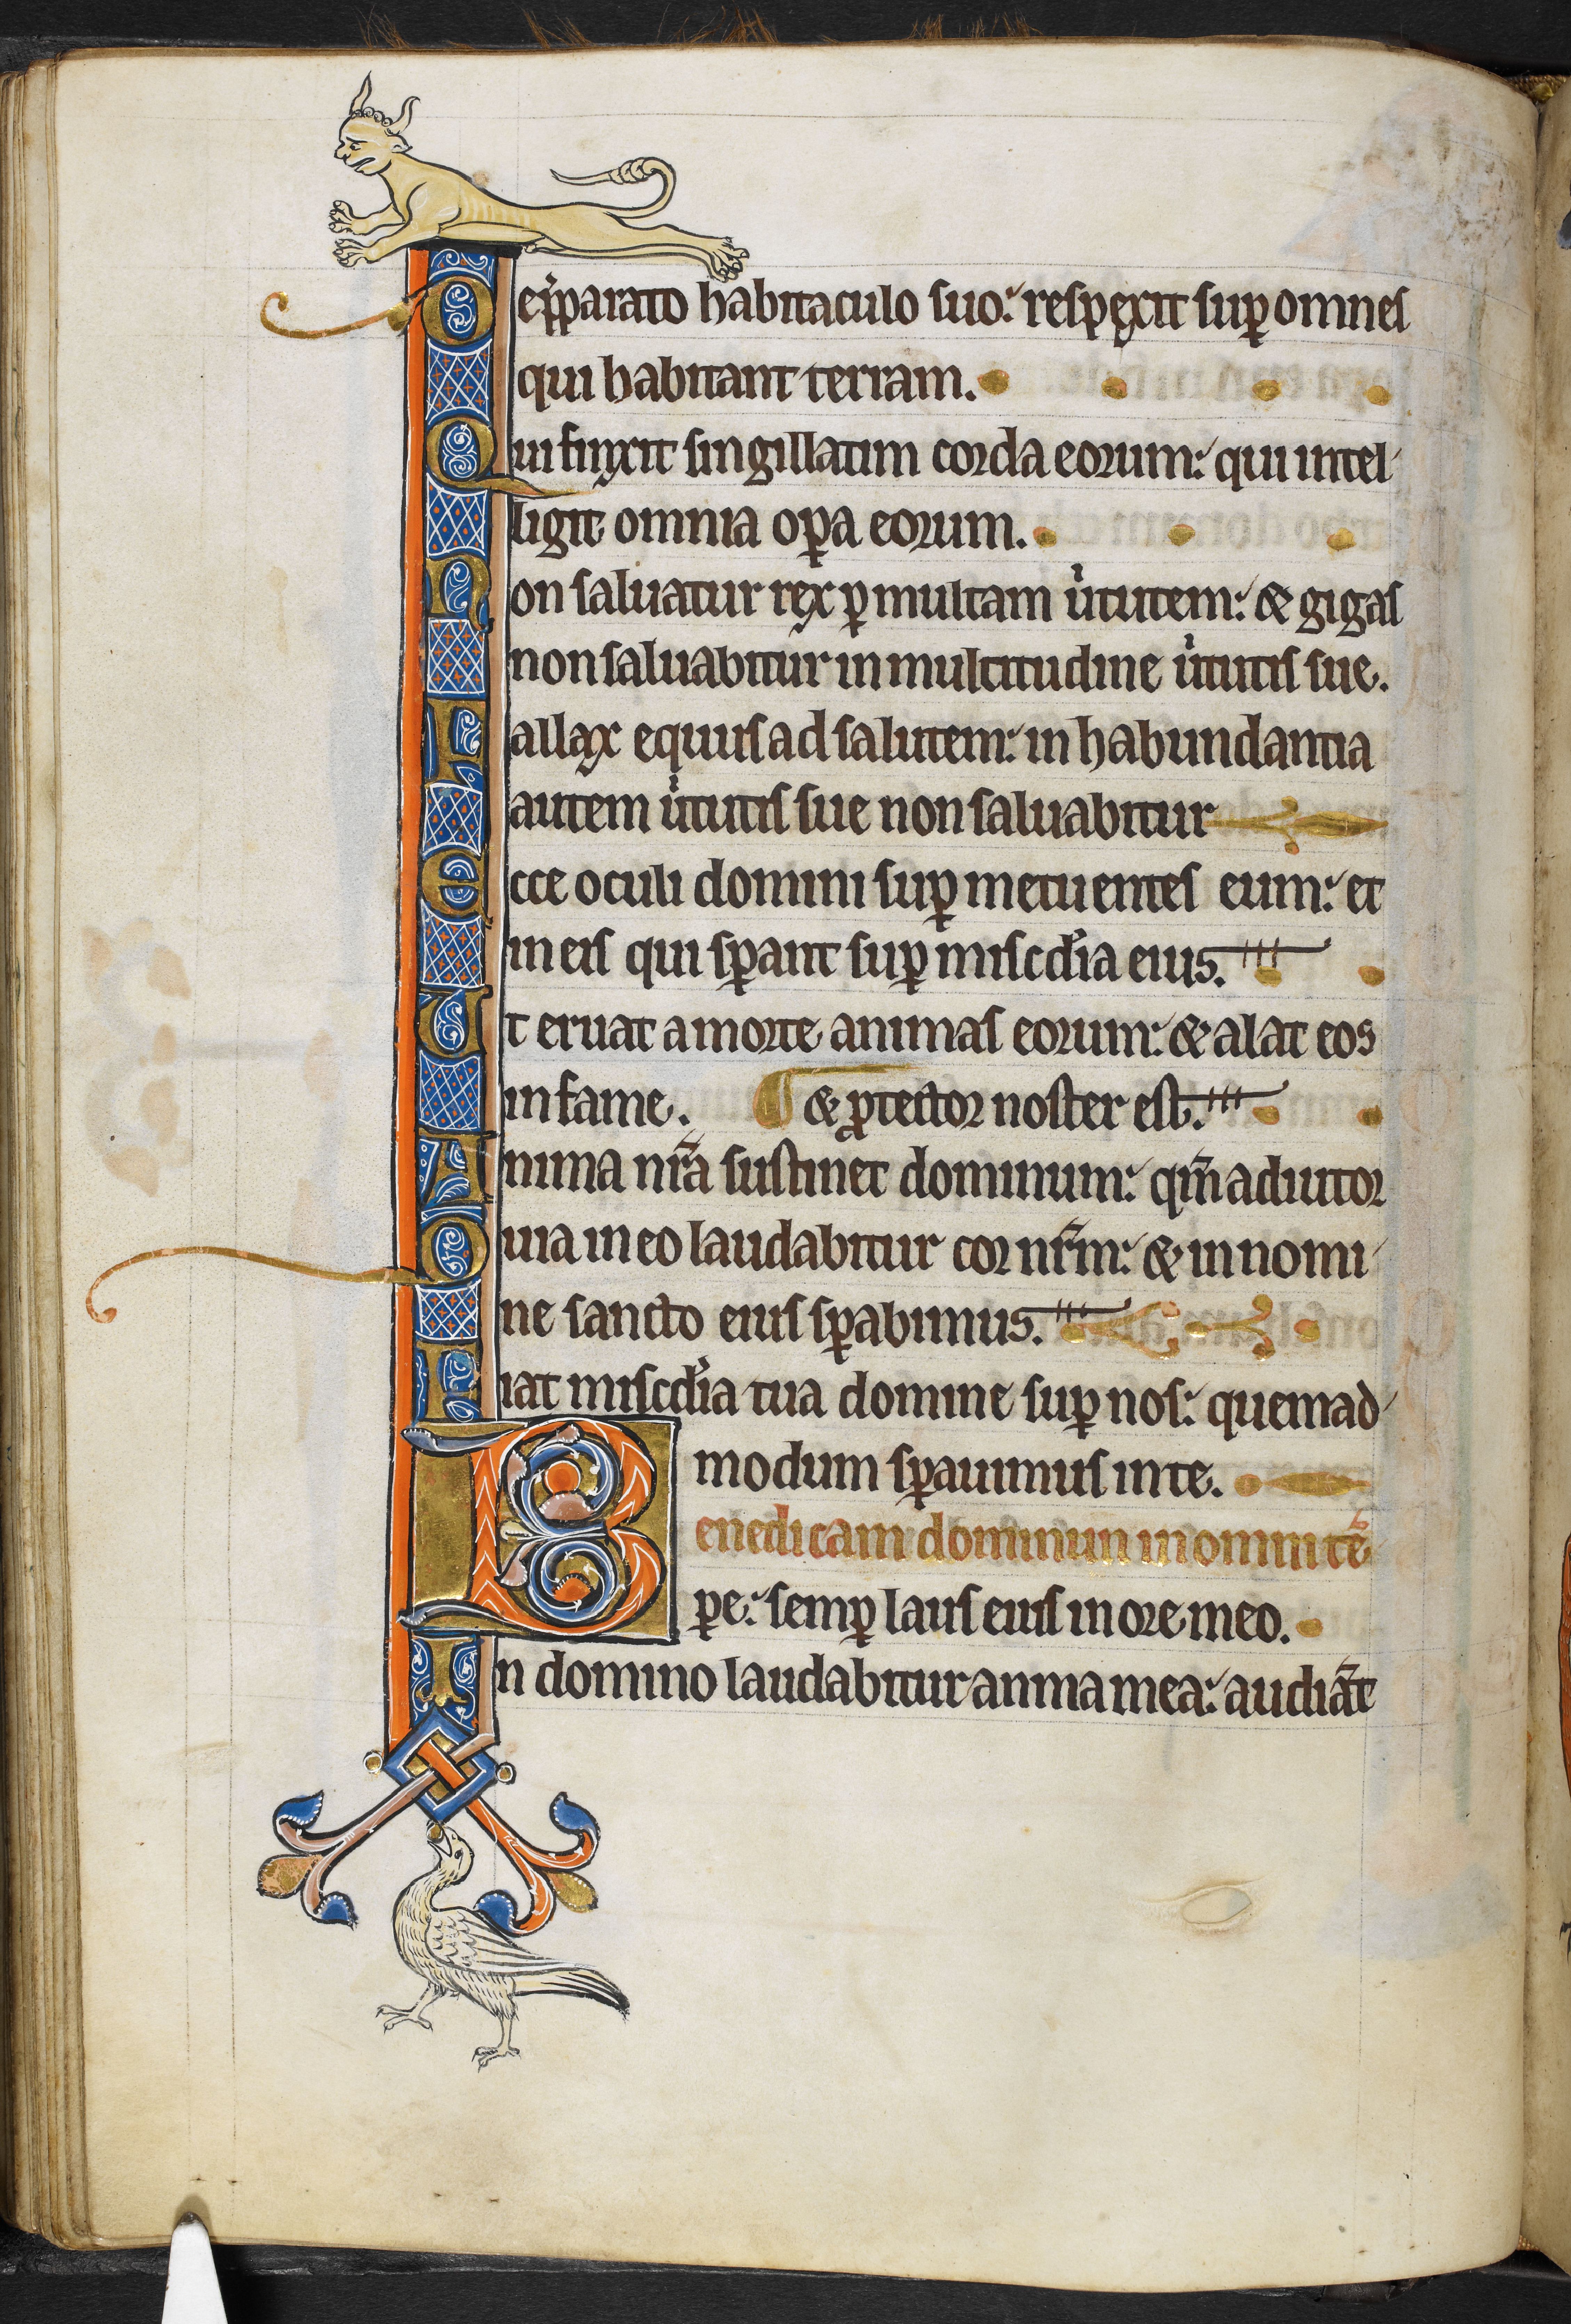 De p̄parato habitaculo suo: respexit suꝑ omnes
qui habitant terram.
Qui finxit singillatim corda eorum: qui intel-
ligit omnia oꝑa eorum.
Non saluatur rex ꝑ multam uͥtutem: & gigas
non saluabitur in multitudine uͥtutis sue.
Fallax equus ad salutem: in habundantia
autem uͥtutis sue non saluabitur
Ecce oculi domini suꝑ metuentes eum: et
in eis qui sꝑant suꝑ miscd̄ia eius.
Ut eruat a morte animas eorum: & alat eos
in fame. & ꝓtector noster est.
Anima nr̄a sustinet dominum: qm̄ adiutor
Quia in eo laudabitur cor nr̄m: & in nomi-
ne sancto eius sꝑabimus.
Fiat miscd̄ia tua domine suꝑ nos: quemad-
modum sꝑauimus in te.
Benedicam dominum in omni tē
pe: semꝑ laus eius in ore meo.
In domino laudabitur anima mea: audiāt